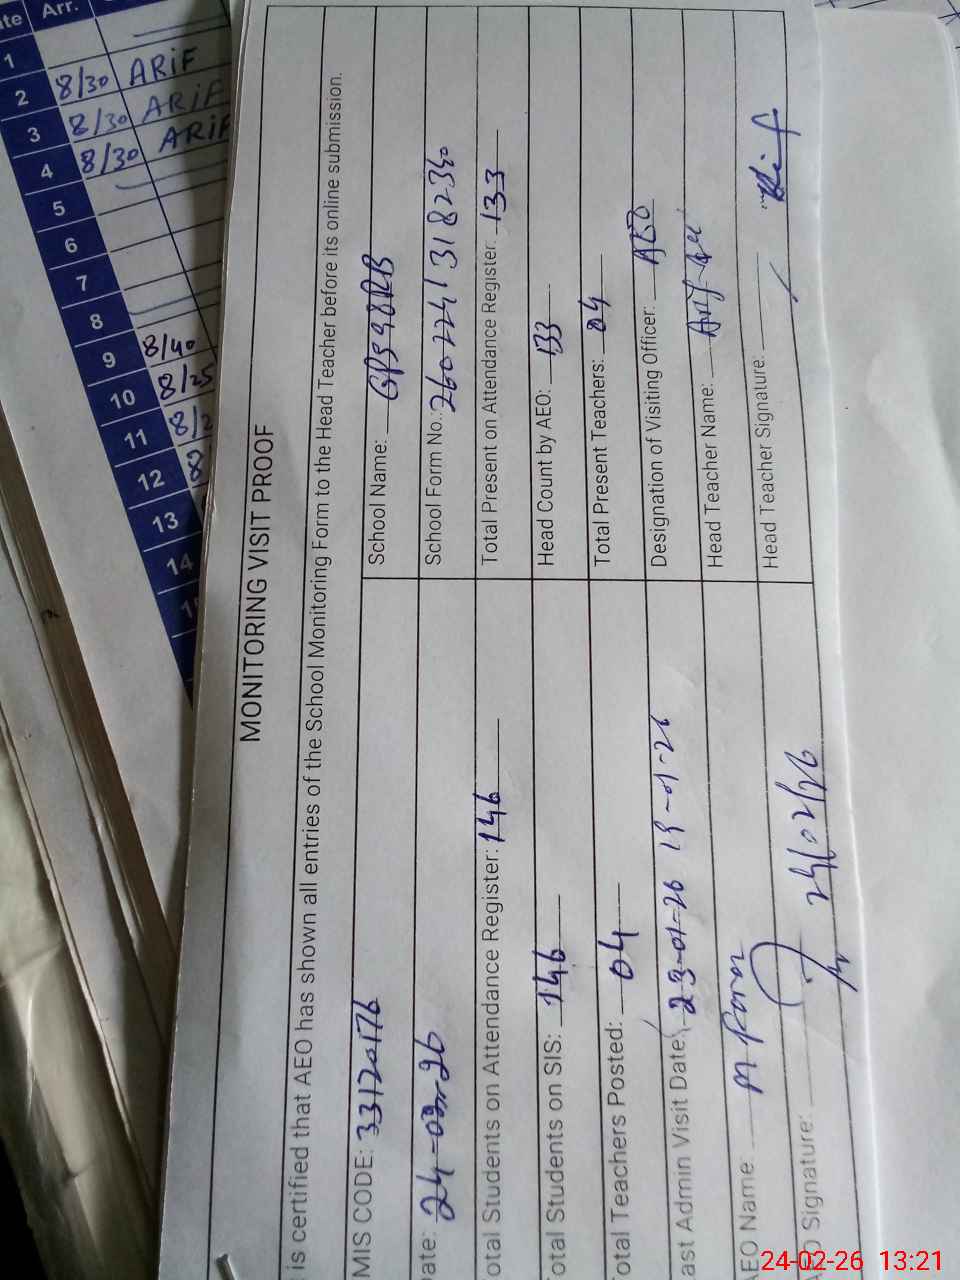 MONITORING VISIT PROOF
is certified that AEO has shown all entries of the School Monitoring Form to the Head Teacher before its online submission.
MIS CODE: 33120176
School Name: GPS 98RB
ate: 24-02-26
School Form No.: 26022413182330
otal Students on Attendance Register: 146
Total Present on Attendance Register: 133
otal Students on SIS: 146
Head Count by AEO: 133
otal Teachers Posted: 04
Total Present Teachers: 04
ast Admin Visit Date: 23-01-26 19-01-26
Designation of Visiting Officer: AEO
AEO Name:
Head Teacher Name:
O Signature: 24/02/26
Head Teacher Signature:
te Arr.
1
2 8/30 ARiF
3 8/30 ARiF
4 8/30 ARiF
5
6
7
8
9 8/40
10 8/25
11 8/2
12 8
13
14
24-02-26 13:21